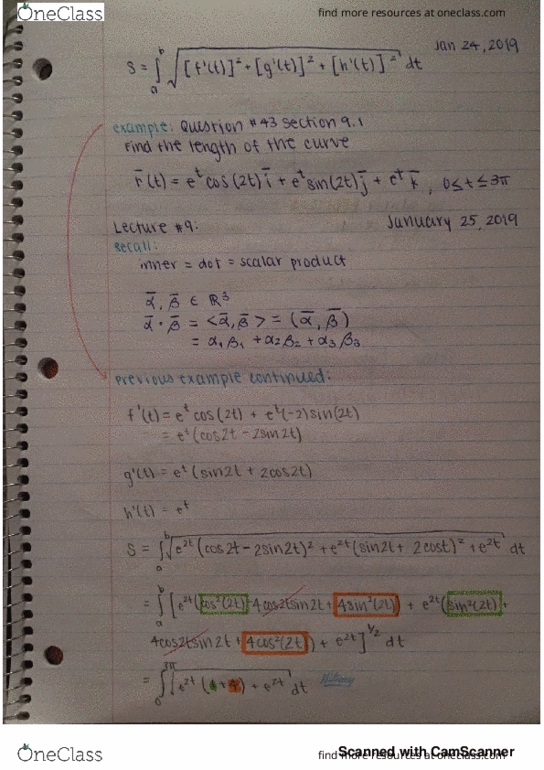 OneClass find more resources at oneclass.com
Jan 24, 2019
S = ∫ₐᵇ √([f'(t)]² + [g'(t)]² + [h'(t)]²) dt
example: Question #43 section 9.1
Find the length of the curve
r̄(t) = eᵗcos(2t)ī + eᵗsin(2t)j̄ + eᵗk̄, 0≤t≤3π
Lecture #9: January 25, 2019
recall:
inner = dot = scalar product
ᾱ, β̄ ∈ ℝ³
ᾱ · β̄ = <ᾱ, β̄> = (ᾱ, β̄)
= α₁β₁ + α₂β₂ + α₃β₃
Previous example continued:
f'(t) = eᵗcos(2t) + eᵗ(-2)sin(2t)
= eᵗ(cos2t - 2sin2t)
g'(t) = eᵗ(sin2t + 2cos2t)
h'(t) = eᵗ
S = ∫ₐᵇ √(e²ᵗ(cos2t - 2sin2t)² + e²ᵗ(sin2t + 2cost)² + e²ᵗ) dt
= ∫ₐᵇ [e²ᵗ(cos²(2t) - 4cos2tsin2t + 4sin²(2t) + e²ᵗ(sin²(2t) +
4cos2tsin2t + 4cos²(2t)) + e²ᵗ]^1/2 dt
= ∫₀³π √(e²ᵗ(1+4) + e²ᵗ) dt
Scanned with CamScanner
OneClass find more resources at oneclass.com